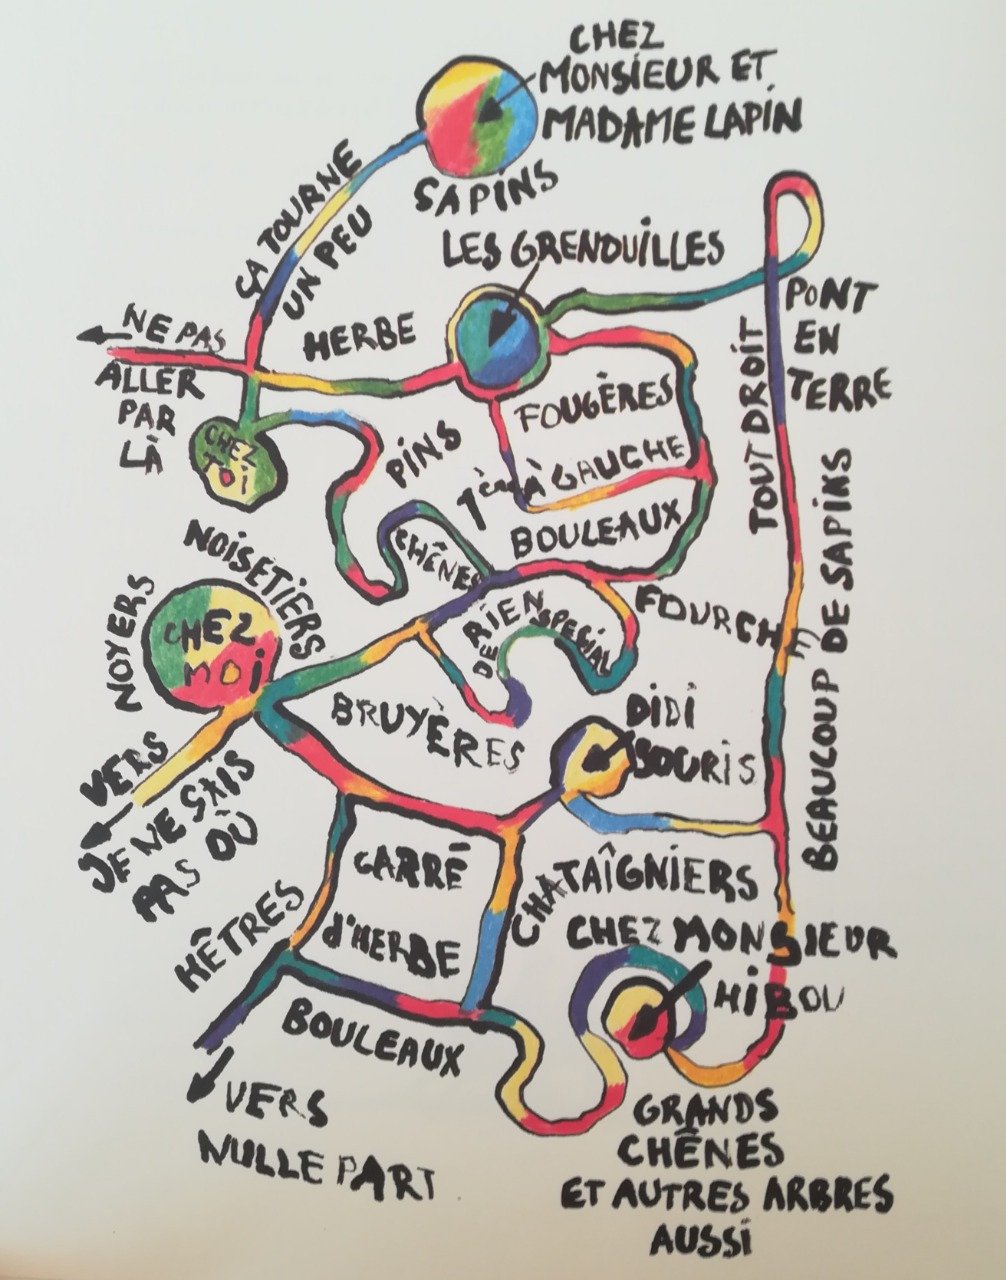 CHEZ
MONSIEUR ET
MADAME LAPIN
SAPINS
ÇA TOURNE
UN PEU
LES GRENOUILLES
NE PAS
ALLER
PAR
LÀ
HERBE
PONT
EN
TERRE
TOUT DROIT
FOUGÈRES
CHEZ
TOI
PINS
1ère À GAUCHE
BOULEAUX
CHÊNES
NOISETIERS
NOYERS
CHEZ
MOI
RIEN
DE SPECIAL
FOURCHE
BEAUCOUP DE SAPINS
BRUYÈRES
DIDI
SOURIS
VERS
JE NE SAIS
PAS OÙ
CARRÉ
d'HERBE
CHATAÎGNIERS
HÊTRES
CHEZ MONSIEUR
HIBOU
BOULEAUX
VERS
NULLE PART
GRANDS
CHÊNES
ET AUTRES ARBRES
AUSSI